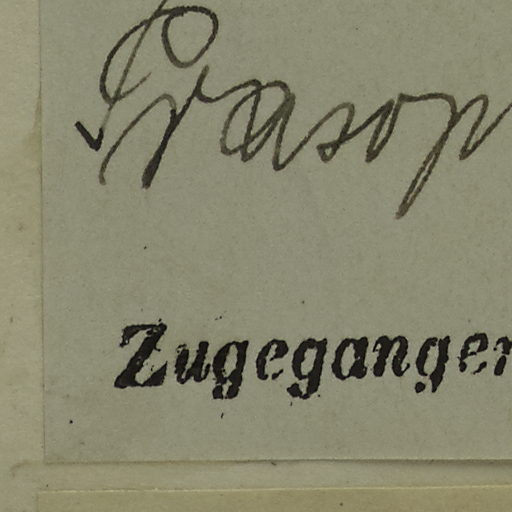 Prasop
Zugegangen